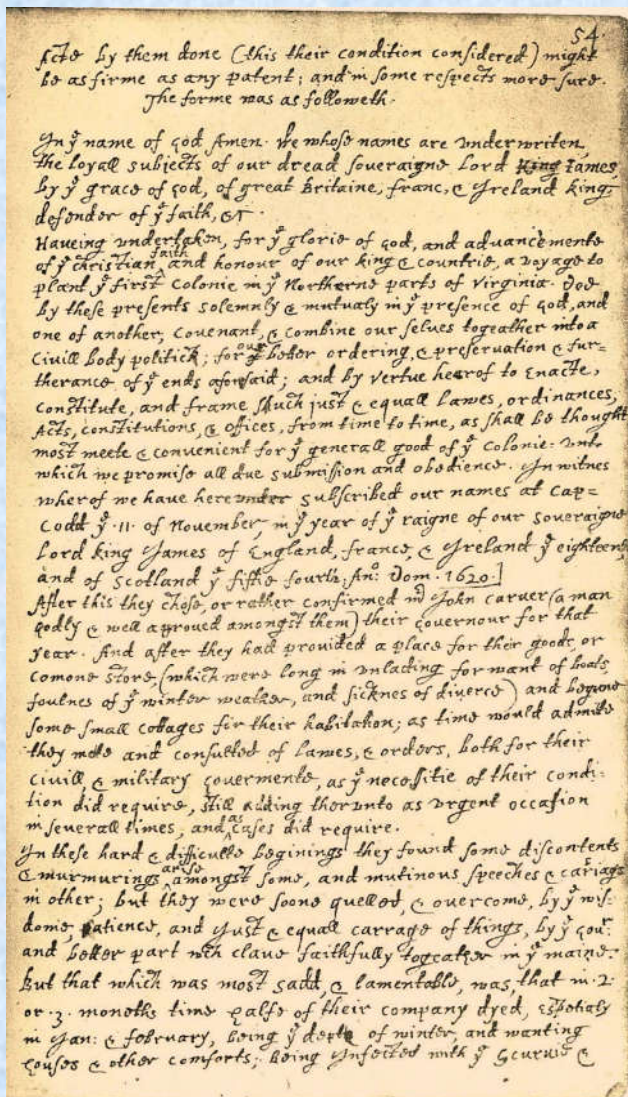 54.
Acts by them done (this their condition considered) might
be as firme as any patent; and in some respects more sure.
The forme was as followeth.
In yͤ name of god Amen. We whose names are underwriten,
the loyall subjects of our dread soveraigne Lord King James,
by yͤ grace of god, of great Britaine, franc, & Ireland king,
defender of yͤ faith, &c.
Haveing undertaken, for yͤ glorie of god, and advancemente
of yͤ christian faith and honour of our king & countrie, a voyage to
plant yͤ first colonie in yͤ Northerne parts of Virginia. Doe
by these presents solemnly & mutualy in yͤ presence of God, and
one of another, covenant, & combine our selves togeather into a
Civill body politick; for our better ordering, & preservation & fur=
therance of yͤ ends aforesaid; and by vertue hearof to Enacte,
constitute, and frame such just & equall lawes, ordinances,
Acts, constitutions, & offices, from time to time, as shall be thought
most meete & convenient for yͤ generall good of yͤ Colonie: unto
which we promise all due submission and obedience. In witnes
wherof we have hereunder subscribed our names at Cap=
Codd yͤ .11. of November, in yͤ year of yͤ raigne of our soveraigne
Lord king James of England, france, & Ireland yͤ eighteenth
and of Scotland yͤ fiftie fourth. Anͦ: Dom. 1620.]
After this they chose, or rather confirmed mͬ John Carver (a man
godly & well approved amongst them) their Governour for that
year. And after they had provided a place for their goods, or
comone store, (which were long in unlading for want of boats,
foulnes of yͤ winter weather, and sicknes of diverce) and begune
some small cottages for their habitation; as time would admitte
they mette and consulted of lawes, & orders, both for their
civill, & military govermente, as yͤ necessitie of their condi=
tion did require, still adding therunto as urgent occasion
in severall times, and as cases did require.
In these hard & difficulte beginings they found some discontents
& murmurings arise amongst some, and mutinous speeches & cariags
in other; but they were soone quelled, & overcome, by yͤ wis=
dome, patience, and just & equall carrage of things, by yͤ Govͬ
and better part wch clave faithfully togeather in yͤ maine.
But that which was most sadd, & lamentable, was, that in .2.
or .3. moneths time halfe of their company dyed, espetialy
in Jan: & february, being yͤ depth of winter, and wanting
houses & other comforts; being Infected with yͤ Scurvie &